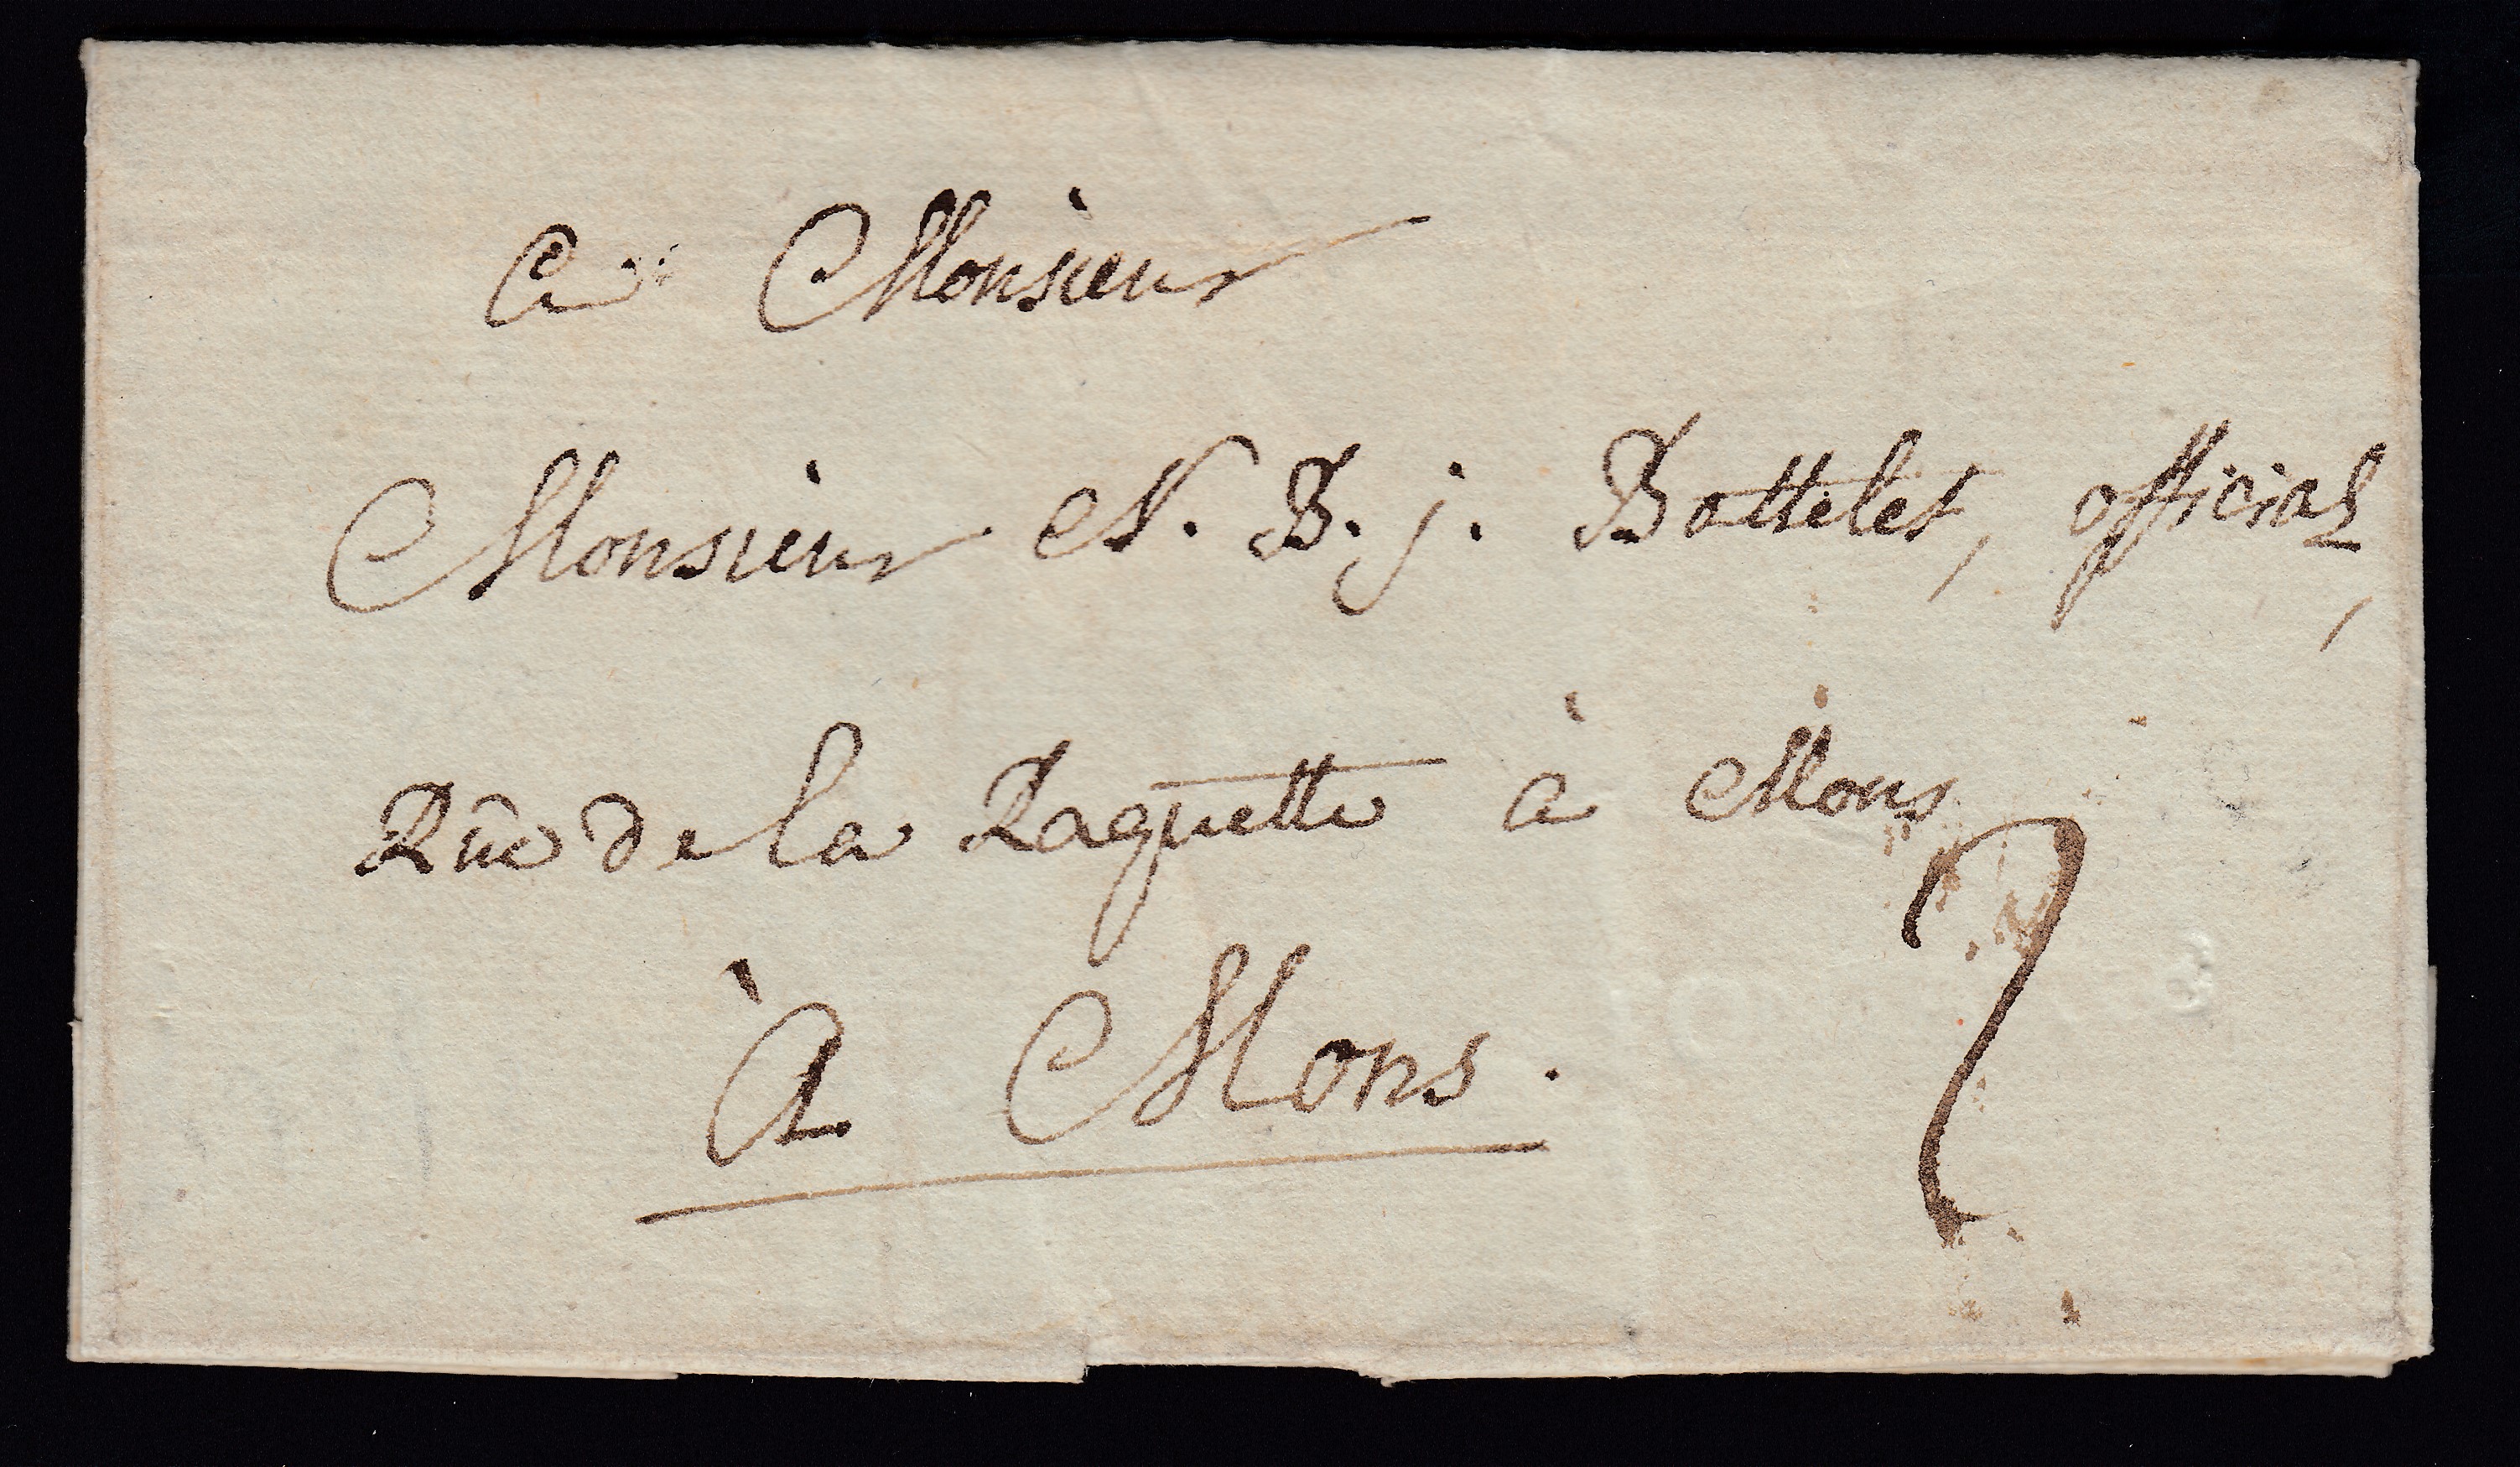 A Monsieur
Monsieur N. B. j. Bottelet, official,
Rüe de la Raquette à Mons
À Mons.